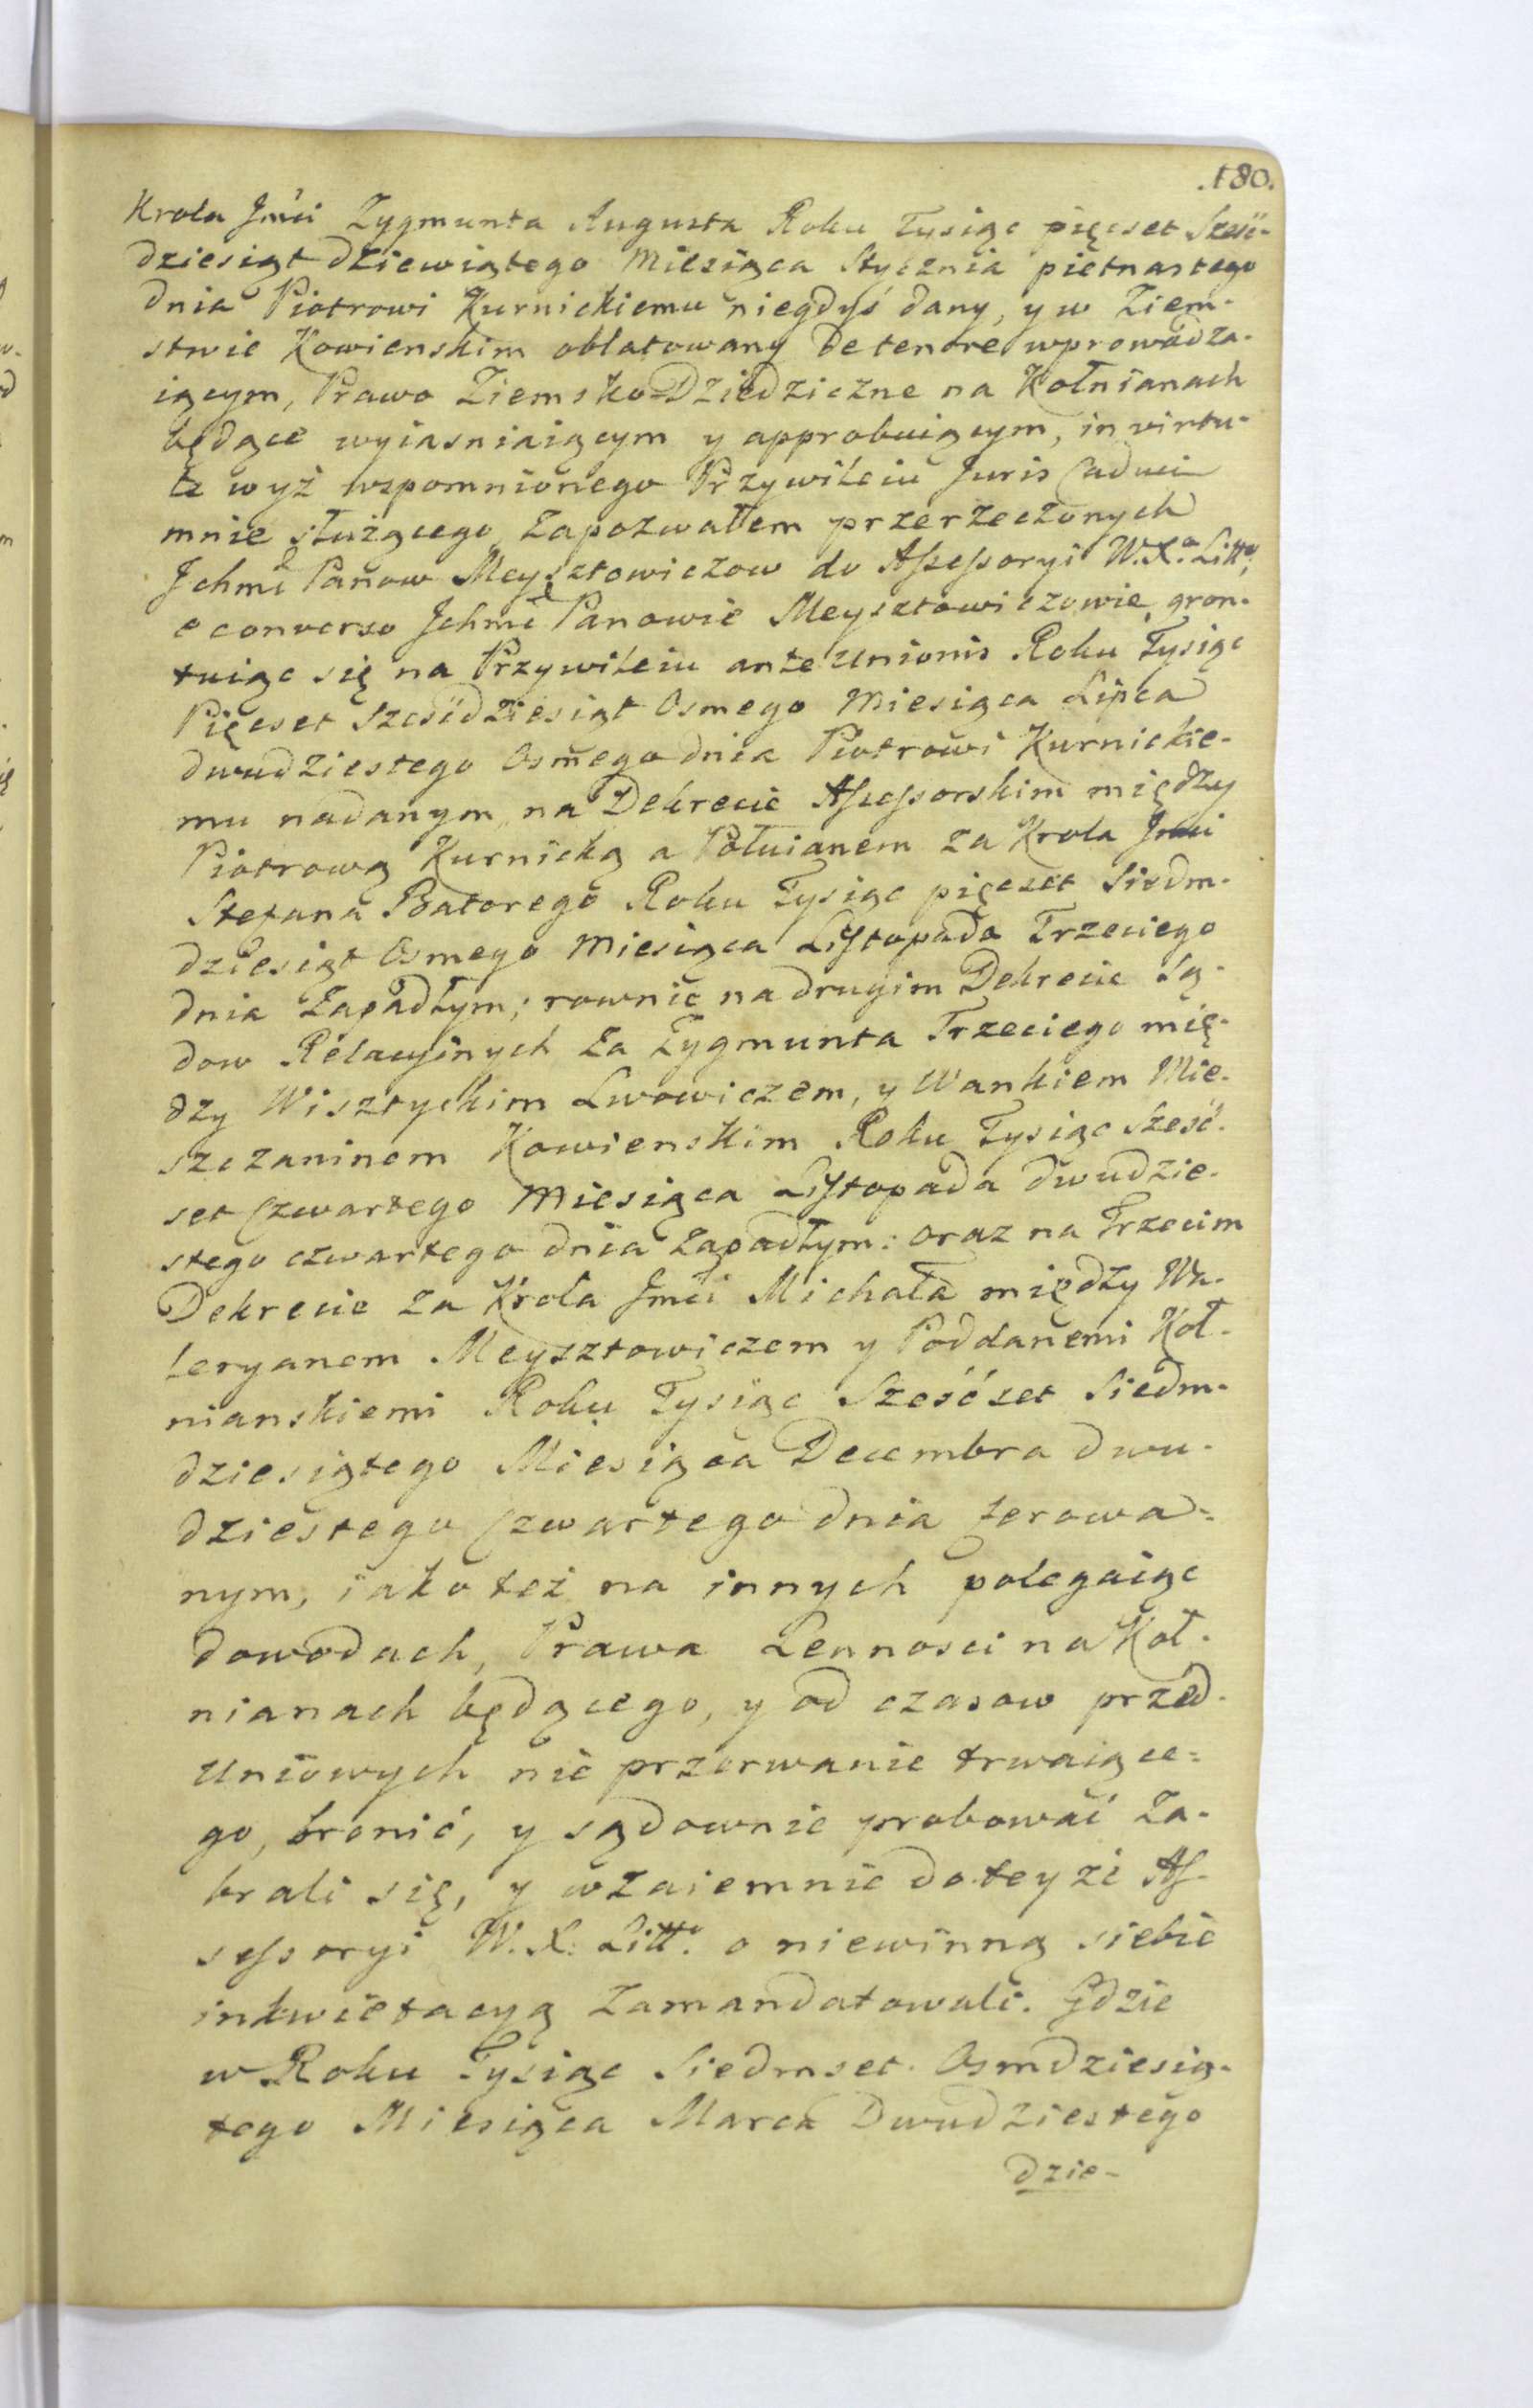 .180.
Krola Jmci Zygmunta Augusta Roku Tysiąc pięcset Sześć-
dziesiąt dziewiątego Miesiąca Stycznia piętnastego
dnia Piotrowi Kurnickiemu niegdyś dany, y w Ziem-
stwie Kowienskim oblatowany de tenore wprowadza-
iącym, Prawo Ziemsko=Dziedziczne na Kołnianach
będące wyiasniaiącym y approbuiącym, in virtu-
te wyż wspomnionego Przywileiu Juris Caduci
mnie służącego, Zapozwałem przerzeczonych
Jchmć Panow Meysztowiczow do Assessoryi W.X.o Litto,
e converso Jchmć Panowie Meysztowiczowie, gron-
tuiąc się na Przywileiu ante Unionis Roku Tysiąc
Pięcset Sześćdziesiąt Osmego Miesiąca Lipca
dwudziestego Osmego dnia Piotrowi Kurnickie-
mu nadanym, na Dekrecie Assessorskim między
Piotrową Kurnicką a Połuianem za Krola Jmci
Stefana Batorego Roku Tysiąc pięcset Siedm-
dziesiąt Osmego Miesiąca Listopada Trzeciego
dnia Zapadłym; rownie na drugim Dekrecie Są-
dow Relacyinych Za Zygmunta Trzeciego mię-
dzy Wisztyckim Lwowiczem, y Wankiem Mie-
szczaninem Kowienskim Roku Tysiąc Sześć-
set Czwartego Miesiąca Listopada dwudzie-
stego czwartego dnia Zapadłym: oraz na Trzecim
Dekrecie za Krola Jmci Michała między Wa-
leryanem Meysztowiczem y Poddanemi Koł-
nianskiemi Roku Tysiąc Sześćset Siedm-
dziesiątego Miesiąca Decembra dwu-
dziestego Czwartego dnia ferowa=
nym, iako też na innych polegaiąc
dowodach, Prawa Lennosci na Koł-
nianach będącego, y od czasow przed-
Uniowych nie przerwanie trwaiące=
go, bronić, y sądownie probować Za-
brali się, y wzaiemnie do teyże As-
sessoryi W.X. Litto. o niewinną siebie
inkwietacyą Zamandatowali. Gdzie
w Roku Tysiąc Siedmset Osmdziesią-
tego Miesiąca Marca Dwudziestego
dzie-